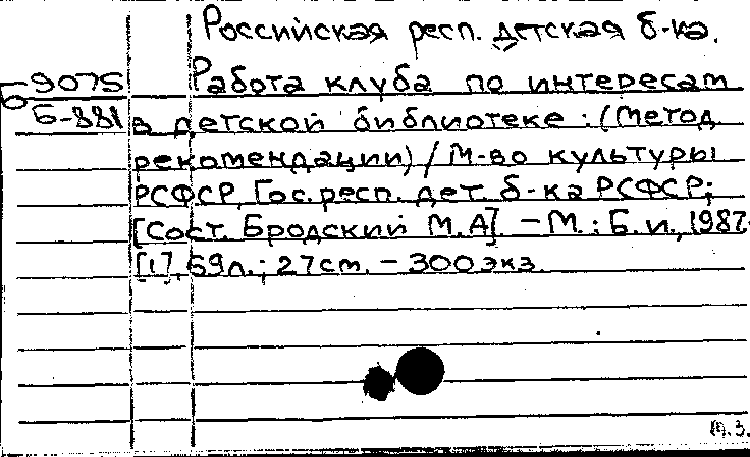 Российская респ. детская б-ка.
Б 9075
Б-881
Работа клуба по интересам
в детской библиотеке : (Метод.
рекомендации) / М-во культуры
РСФСР, Гос. респ. дет. б-ка РСФСР;
[Сост. Бродский М.А]. – М. : Б. и., 1987.
[1], 59л. ; 27 cm. – 300 экз.